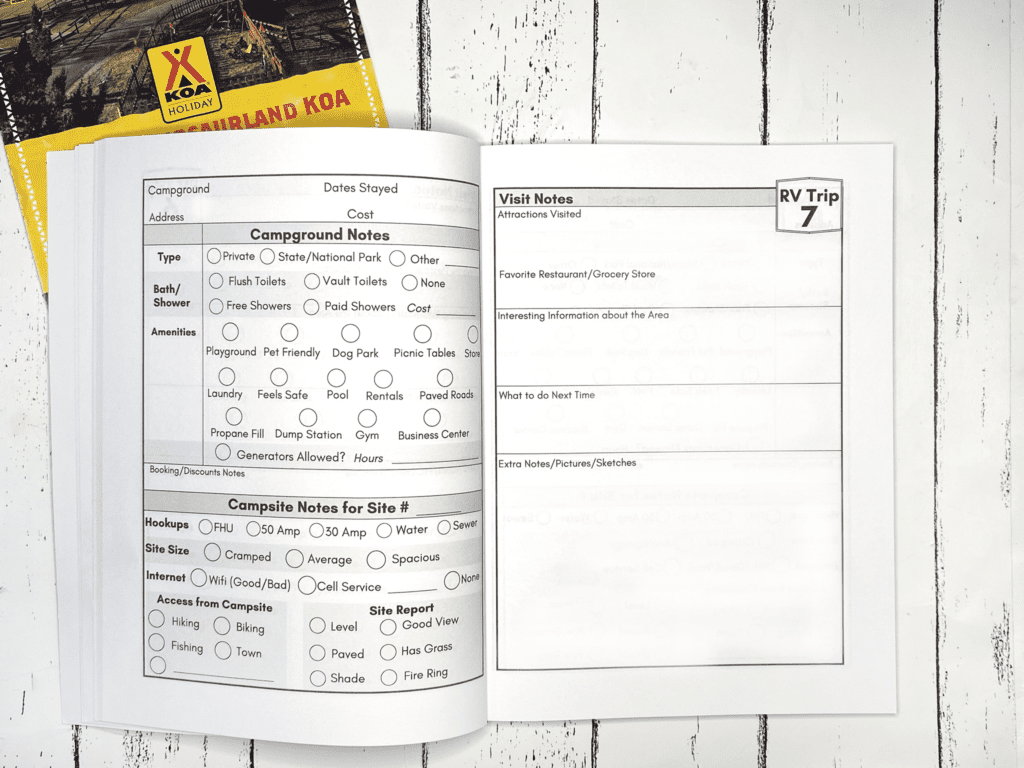 KOA
HOLIDAY
KOA
Campground Dates Stayed
Address Cost
Campground Notes
Type Private State/National Park Other
Bath/
Shower
Flush Toilets Vault Toilets None
Free Showers Paid Showers Cost
Amenities
Playground Pet Friendly Dog Park Picnic Tables Store
Laundry Feels Safe Pool Rentals Paved Roads
Propane Fill Dump Station Gym Business Center
Generators Allowed? Hours
Booking/Discounts Notes
Campsite Notes for Site #
Hookups FHU 50 Amp 30 Amp Water Sewer
Site Size Cramped Average Spacious
Internet Wifi (Good/Bad) Cell Service None
Access from Campsite
Hiking Biking
Fishing Town
Site Report
Level Good View
Paved Has Grass
Shade Fire Ring
Visit Notes
RV Trip
7
Attractions Visited
Favorite Restaurant/Grocery Store
Interesting Information about the Area
What to do Next Time
Extra Notes/Pictures/Sketches